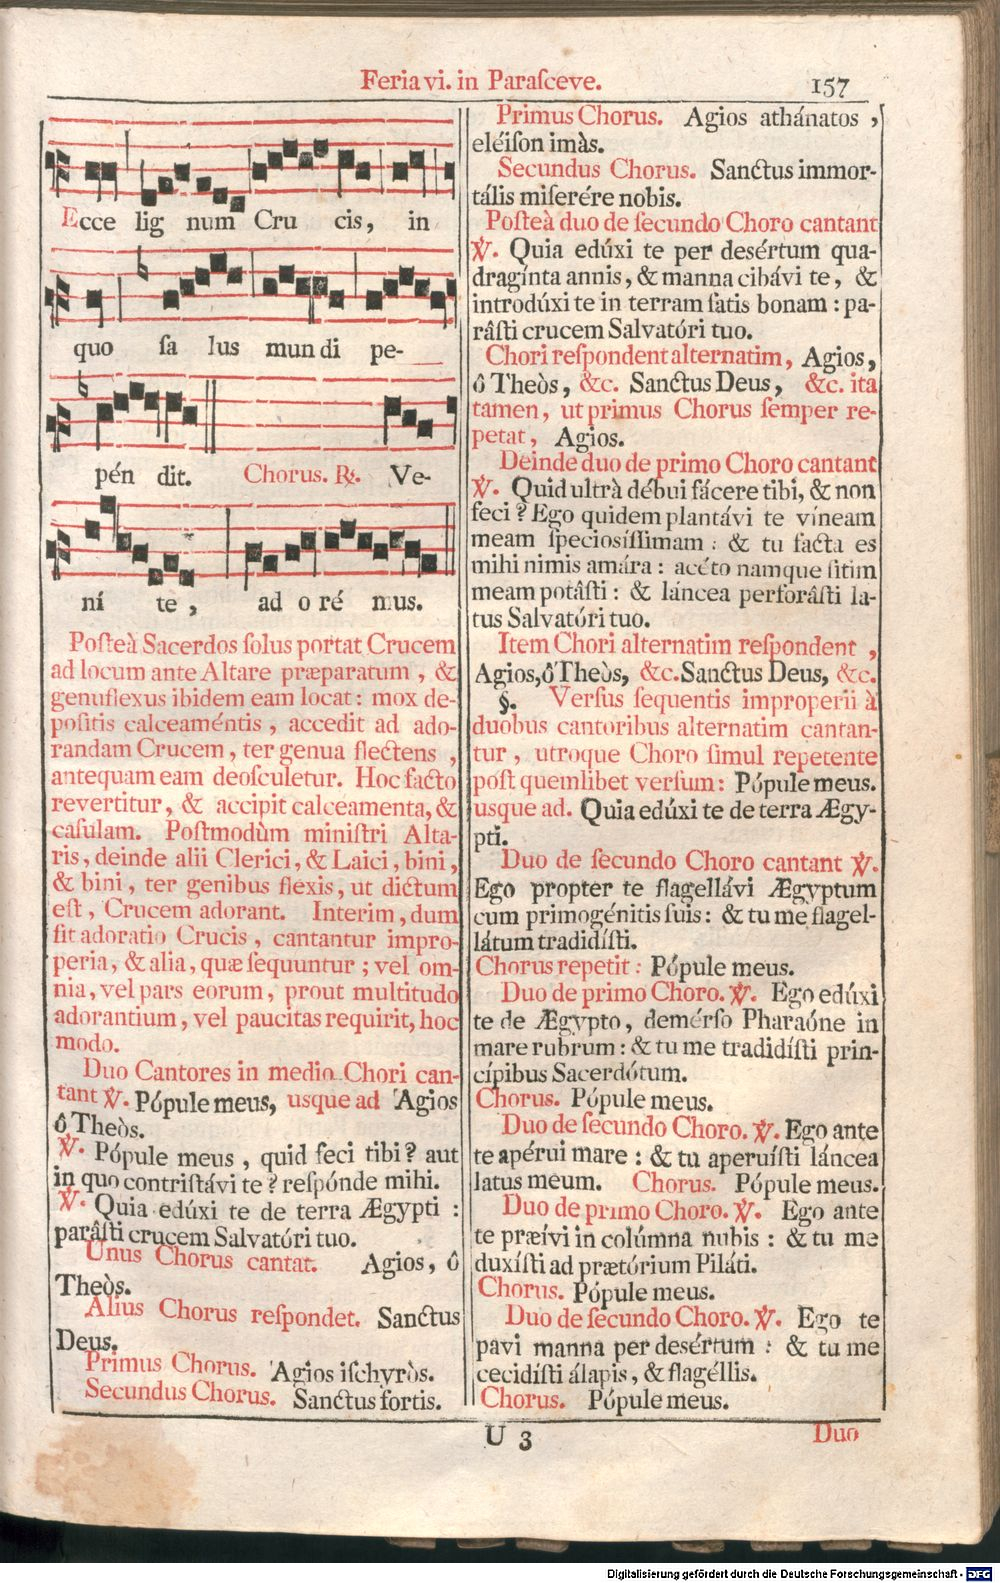 Feria vi. in Paraſceve.
157
Ecce lig num Cru cis, in
quo ſa lus mundi pe-
pén dit. Chorus. ℟. Ve-
ní te, ad o ré mus.
Poſteà Sacerdos ſolus portat Crucem
ad locum ante Altare præparatum, &
genuflexus ibidem eam locat: mox de-
poſitis calceaméntis, accedit ad ado-
randam Crucem, ter genua flectens,
antequam eam deoſculetur. Hoc facto
revertitur, & accipit calceamenta, &
caſulam. Poſtmodùm miniſtri Alta-
ris, deinde alii Clerici, & Laici, bini,
& bini, ter genibus flexis, ut dictum
eſt, Crucem adorant. Interim, dum
fit adoratio Crucis, cantantur impro-
peria, & alia, quæ ſequuntur; vel om-
nia, vel pars eorum, prout multitudo
adorantium, vel paucitas requirit, hoc
modo.
Duo Cantores in medio Chori can-
tant ℣. Pópule meus, usque ad Agios
ô Theòs.
℣. Pópule meus, quid feci tibi? aut
in quo contriſtávi te? reſpónde mihi.
℣. Quia edúxi te de terra Ægypti:
parâſti crucem Salvatóri tuo.
Unus Chorus cantat. Agios, ô
Theòs.
Alius Chorus reſpondet. Sanctus
Deus.
Primus Chorus. Agios iſchyròs.
Secundus Chorus. Sanctus fortis.
Primus Chorus. Agios athánatos,
eléiſon imàs.
Secundus Chorus. Sanctus immor-
tális miſerére nobis.
Poſteà duo de ſecundo Choro cantant
℣. Quia edúxi te per desértum qua-
dragínta annis, & manna cibávi te, &
introdúxi te in terram ſatis bonam: pa-
râſti crucem Salvatóri tuo.
Chori reſpondent alternatim, Agios,
ô Theòs, &c. Sanctus Deus, &c. ita
tamen, ut primus Chorus ſemper re-
petat, Agios.
Deinde duo de primo Choro cantant
℣. Quid ultrà débui fácere tibi, & non
feci? Ego quidem plantávi te víneam
meam ſpeciosíſſimam: & tu facta es
mihi nimis amára: acéto namque ſitim
meam potâſti: & láncea perforâſti la-
tus Salvatóri tuo.
Item Chori alternatim reſpondent,
Agios, ô Theòs, &c. Sanctus Deus, &c.
§. Verſus ſequentis improperii à
duobus cantoribus alternatim cantan-
tur, utroque Choro ſimul repetente
poſt quemlibet verſum: Pópule meus.
usque ad. Quia edúxi te de terra Ægy-
pti.
Duo de ſecundo Choro cantant ℣.
Ego propter te flagellávi Ægyptum
cum primogénitis ſuis: & tu me flagel-
látum tradidíſti.
Chorus repetit: Pópule meus.
Duo de primo Choro. ℣. Ego edúxi
te de Ægypto, demérſo Pharaóne in
mare rubrum: & tu me tradidíſti prin-
cípibus Sacerdótum.
Chorus. Pópule meus.
Duo de ſecundo Choro. ℣. Ego ante
te apérui mare: & tu aperuíſti láncea
latus meum. Chorus. Pópule meus.
Duo de primo Choro. ℣. Ego ante
te præívi in colúmna nubis: & tu me
duxíſti ad prætórium Piláti.
Chorus. Pópule meus.
Duo de ſecundo Choro. ℣. Ego te
pavi manna per desértum: & tu me
cecidíſti álapis, & flagéllis.
Chorus. Pópule meus.
U 3
Duo
Digitalisierung gefördert durch die Deutsche Forschungsgemeinschaft - DFG